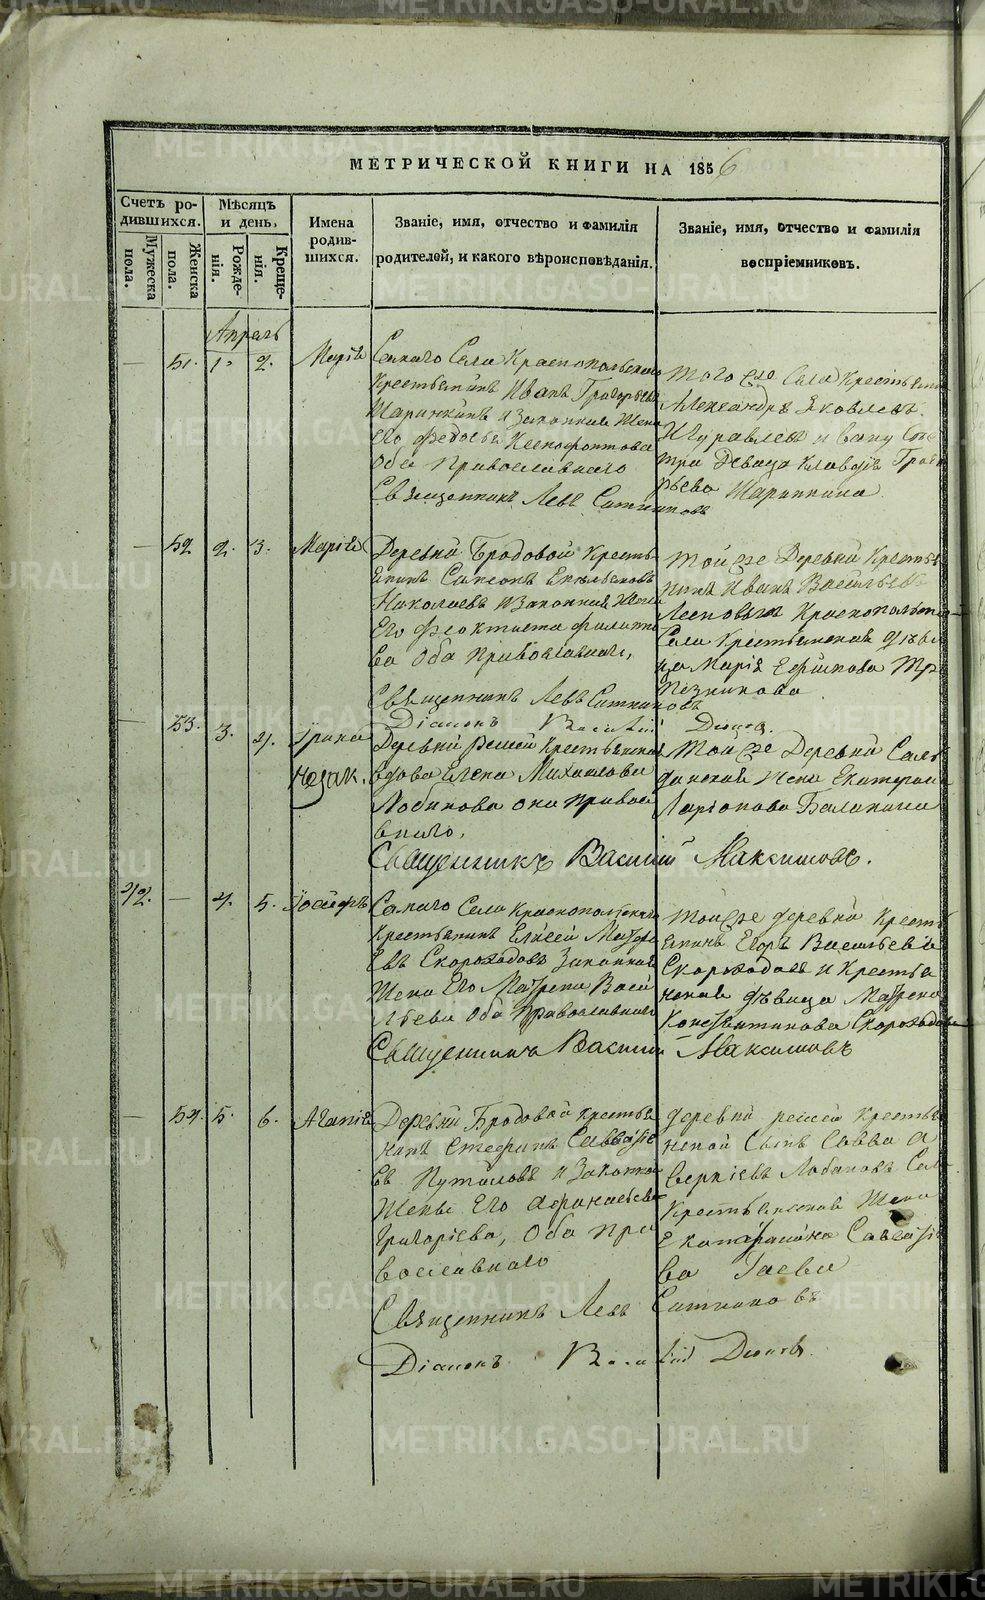 МЕТРИЧЕСКОЙ КНИГИ НА 1856
Счетъ ро-
дившихся.
Мужеска
пола.
Женска
пола.
Мѣсяцъ
и день.
Рожде-
нія.
Креще-
нія.
Имена
родив-
шихся.
Званіе, имя, отчество и фамилія
родителей, и какого вѣроисповѣданія.
Званіе, имя, отчество и фамилія
воспріемниковъ.
Апрель
51. 1. 2. Марія
Самаго Села Краснопольскаго
Крестьянинъ Иванъ Григорьевъ
Шаринкинъ и Законная Жена
Его Федосья Ксенофонтова
Оба Православнаго
Священникъ Левъ Ситниковъ
того же Села Крестьянинъ
Александръ Яковлевъ
Журавлевъ и Сест
ра Девица Клавдія Григо
рьева Шаринкина
52 2. 3. Марія
Деревни Бродовой Кресть
янинъ Самсонъ Емельяновъ
Николаевъ и Законная Жена
Его Феоктиста Филипо
ва Оба Православнаго,
Священникъ Левъ Ситниковъ
Діаконъ
той же Деревни Кресть
нинъ Иванъ Васильевъ
Краснопольскаго
Села Крестьянская Дѣви
ца Марія Ефимова
53. 3. 4. Ірина
незак.
Деревни Реши Крестьянская
вдова Елена Михайлова
Лобанова она Правос
внаго,
Священникъ Василій Максимовъ.
Той же Деревни Сал
данская Жена Екатерина
Ларіонова Балакина
42. — 4. 5. Іосифъ
Самаго Села Краснопольскаго
Крестьянинъ Елисей Матфе
евъ Скороходовъ Законная
Жена Его Матрена Васи
льева Оба Православнаго
Священникъ Василій Максимовъ
Той же деревни Кресть
янинъ Егоръ Васильевъ
Скороходовъ и Крестья
нская дѣвица Матрена
Константинова Скороходова
— 54. 5. 6. Агапія
Деревни Бродовой крестья
нинъ Стефанъ Савватіе
въ Путиловъ и Законная
Жена Его Афанасьева
Григоріева, Оба Пра
вославнаго
Священникъ Левъ Ситниковъ
Діаконъ
деревни решей Крестья
нской Сынъ Савва А
веркіевъ Лобановъ Сел
Крестьянская Жена
Екатерина Савватіе
ва Гаева
METRIKI.GASO-URAL.RU